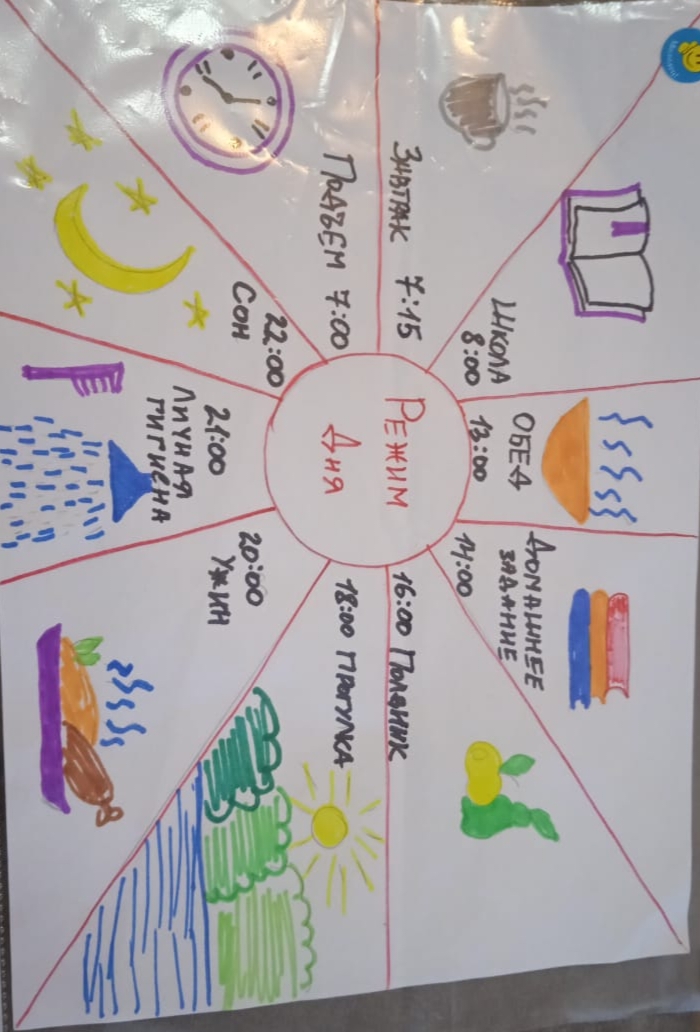 РЕЖИМ
ДНЯ
ПОДЪЕМ 7:00
ЗАВТРАК 7:15
ШКОЛА
8:00
ОБЕД
13:00
ДОМАШНЕЕ
ЗАДАНИЕ
14:00
16:00 ПОЛДНИК
18:00 ПРОГУЛКА
20:00
УЖИН
21:00
ЛИЧНАЯ
ГИГИЕНА
22:00
СОН